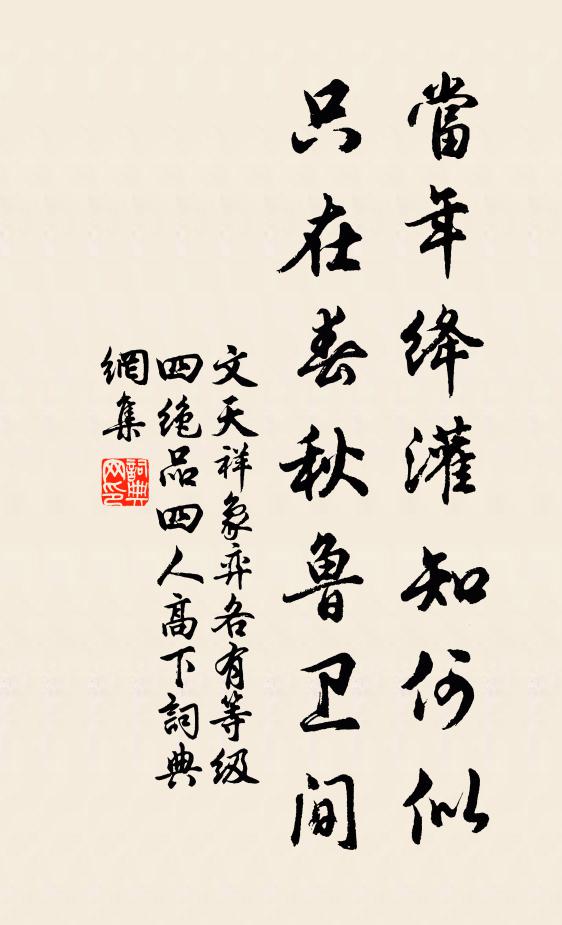 當年绛灌知何似
只在春秋鲁卫间
文天祥象弈各有等级
四绝品四人高下詞典
網集
詞典
网印